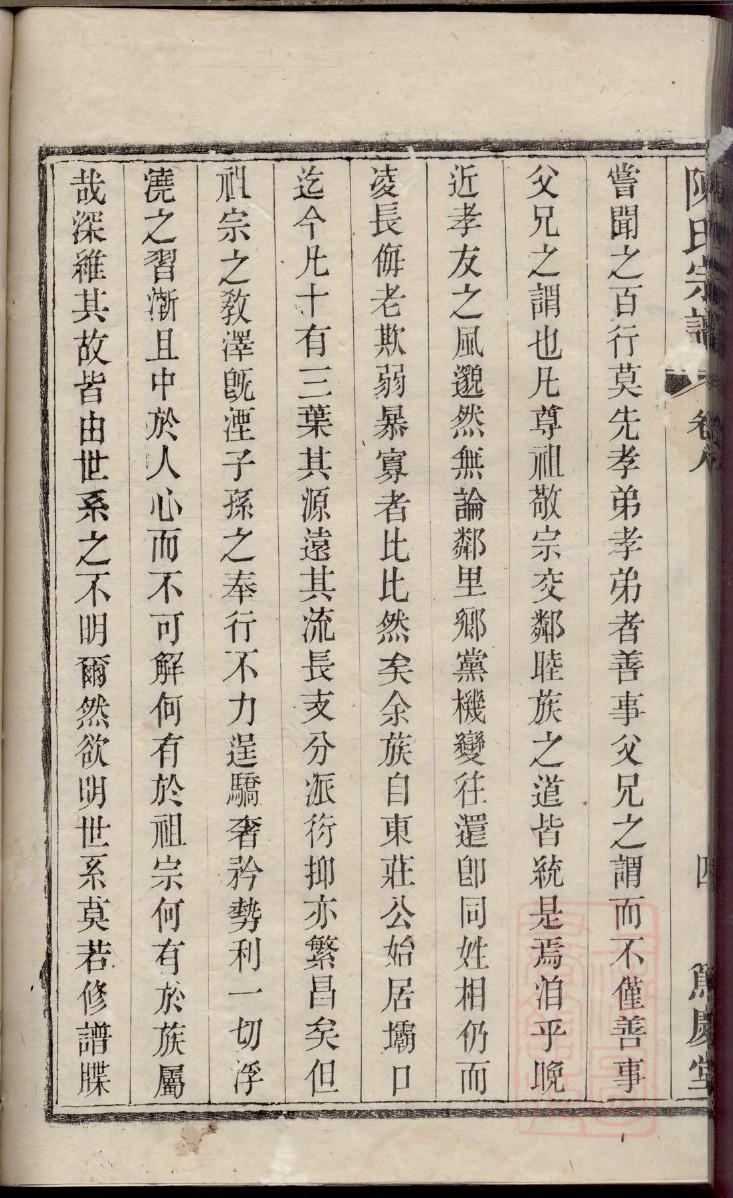 陳氏宗譜 卷八 四 篤慶堂
嘗聞之百行莫先孝弟孝弟者善事父兄之謂而不僅善事
父兄之謂也凡尊祖敬宗交鄰睦族之道皆統是焉洎乎晚
近孝友之風邈然無論鄰里鄉黨機變往還卽同姓相仍而
凌長侮老欺弱暴寡者比比然矣余族自東莊公始居壩口
迄今凡十有三葉其源遠其流長支分派衍抑亦繁昌矣但
祖宗之敎澤旣湮子孫之奉行不力逞驕奢矜勢利一切浮
澆之習漸且中於人心而不可解何有於祖宗何有於族屬
哉深維其故皆由世系之不明爾然欲明世系莫若修譜牒